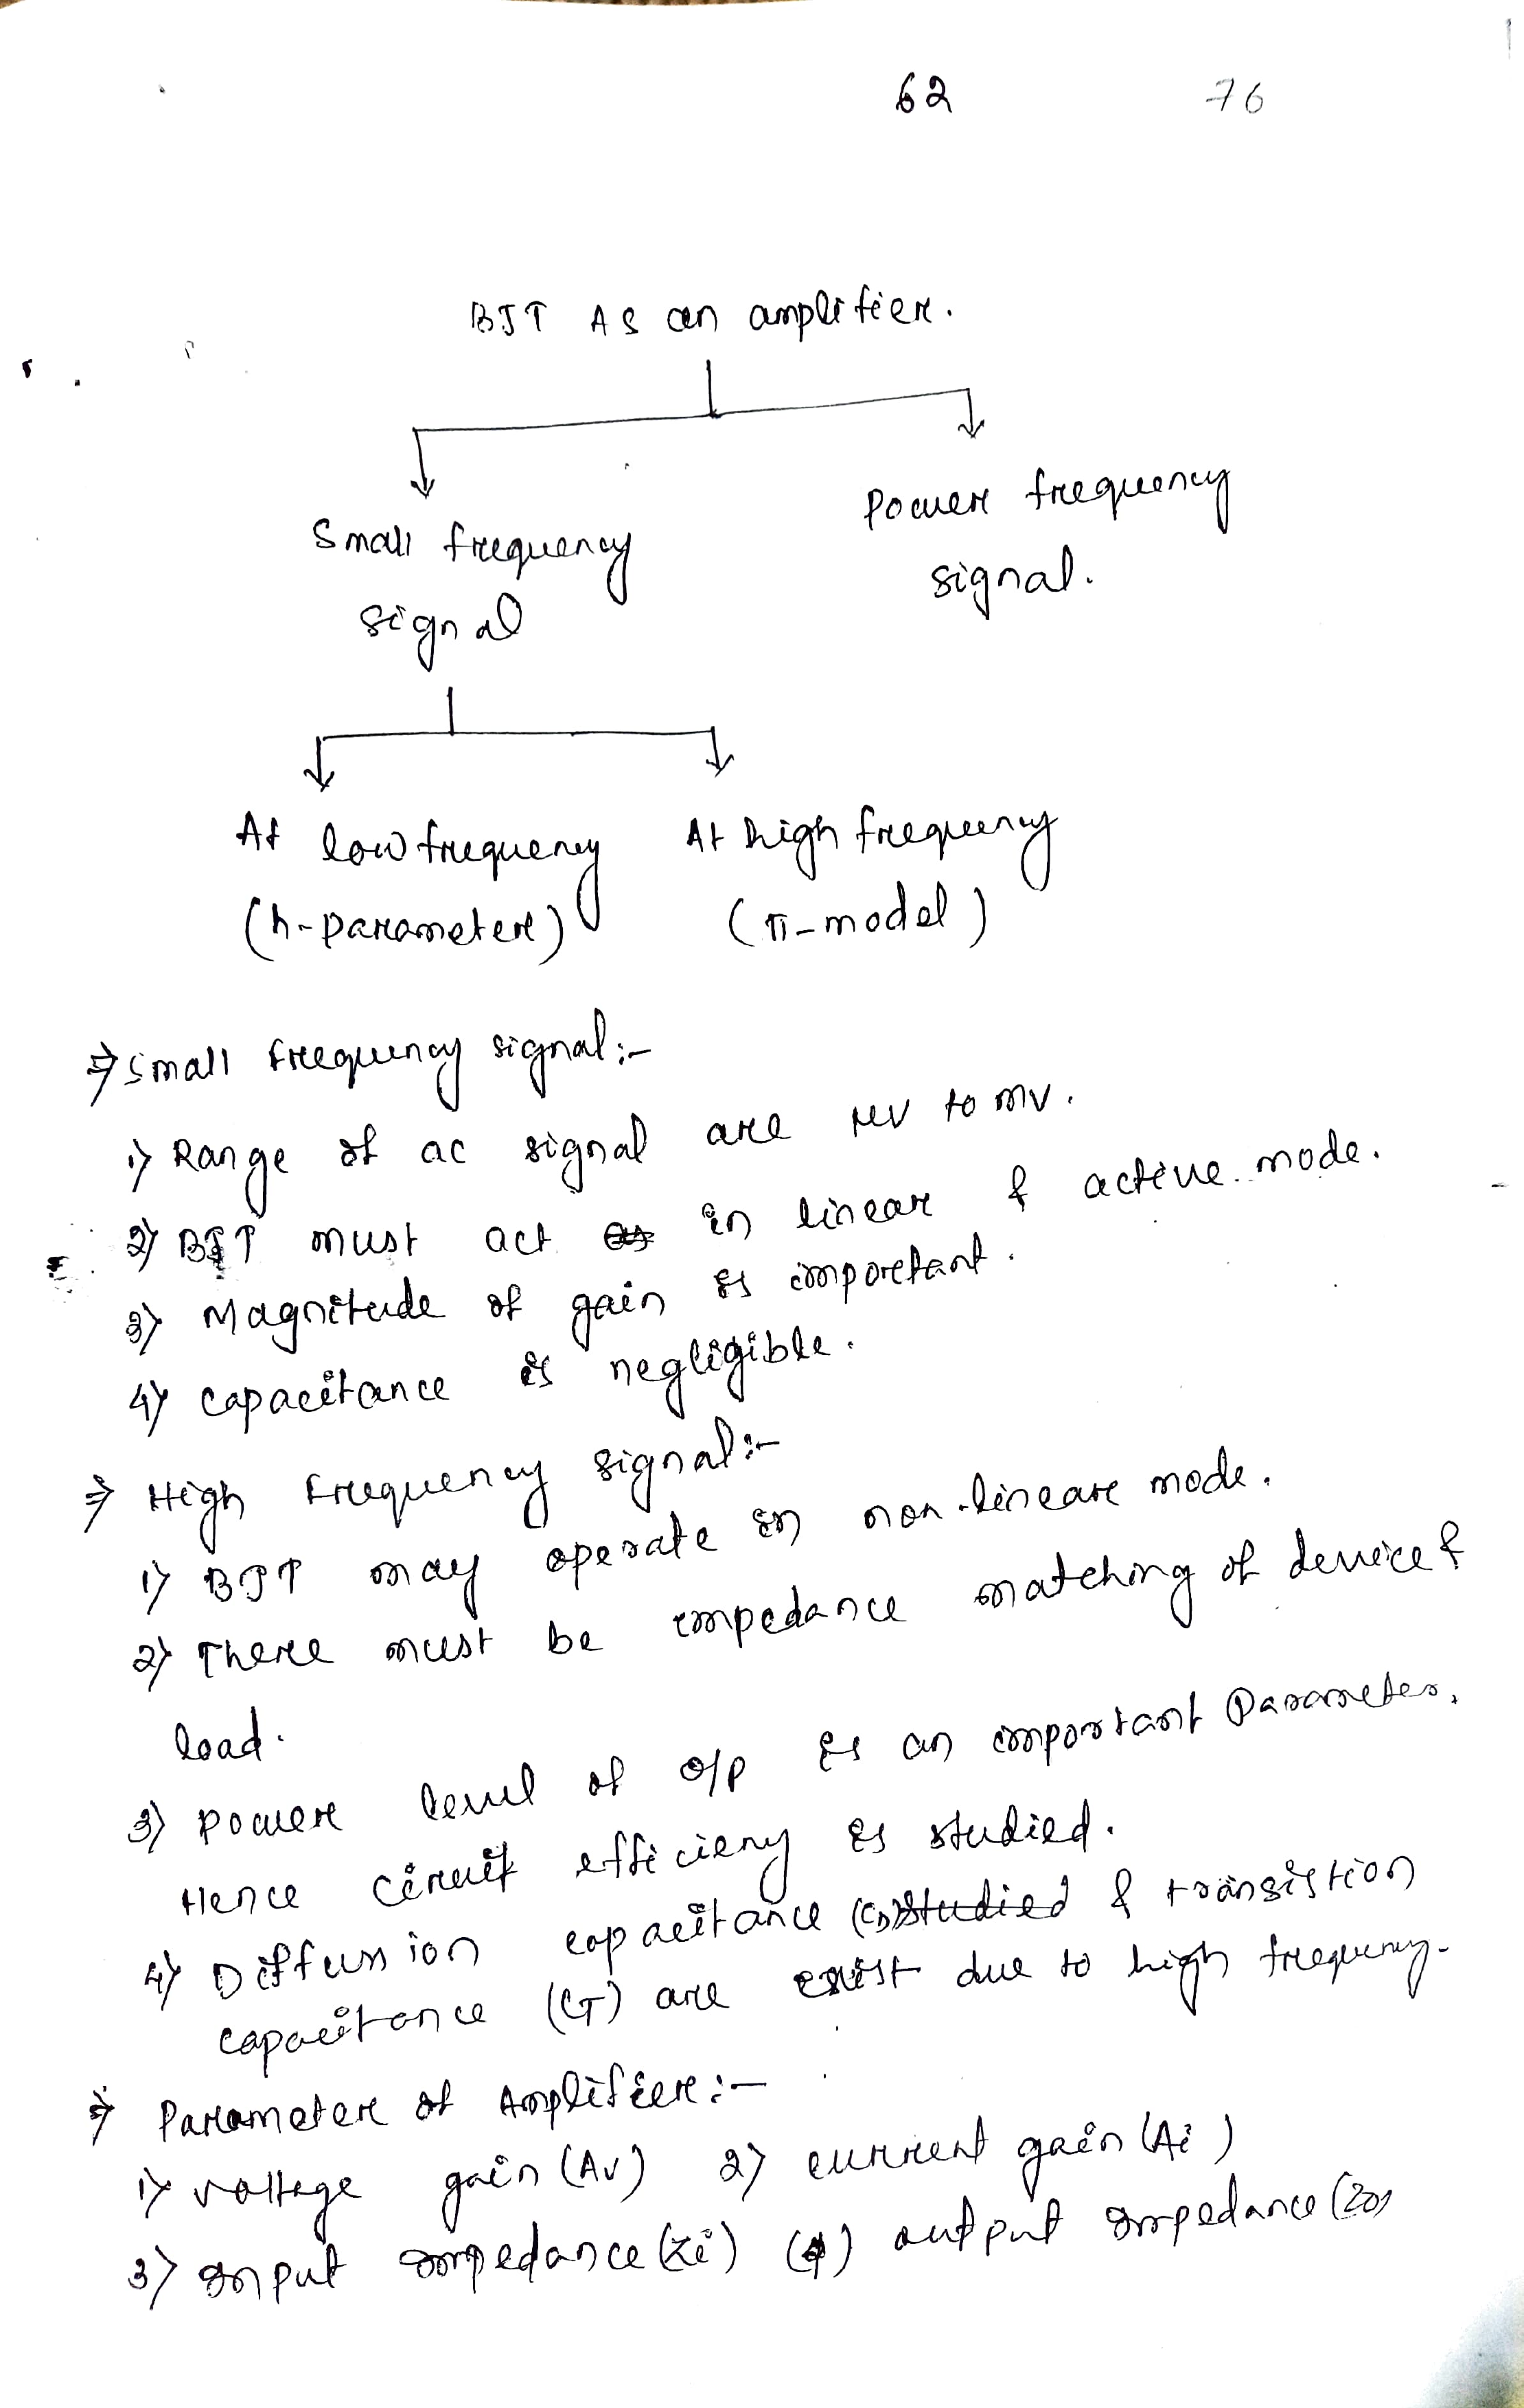 62 76
BJT As an amplifier.
Small frequency
signal
Power frequency
signal.
At low frequency
(h-parameter)
At high frequency
(π-model)
⇒ Small frequency signal:-
1) Range of ac signal are μV to mV.
2) BJT must act as in linear & active mode.
3) Magnitude of gain is important.
4) capacitance is negligible.
⇒ High frequency signal:-
1) BJT may operate in non-linear mode.
2) There must be impedance matching of device &
load.
3) power level of o/p is an important Parameter.
Hence circuit efficieny is studied.
4) Diffussion capacitance (CD) studied & transistion
capacitance (CT) are exist due to high frequency.
⇒ Parameter of Amplifier:-
1) voltage gain (Av) 2) current gain (Ai)
3) Input impedance (Zi) (4) output impedance (Zo)